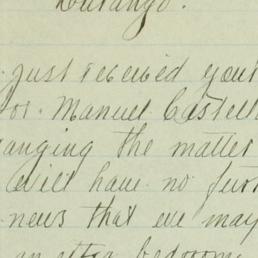 Durango.
just received your
or. Manuel Castell
anging the matter
will have no furt
news that we may
an extra bedroom